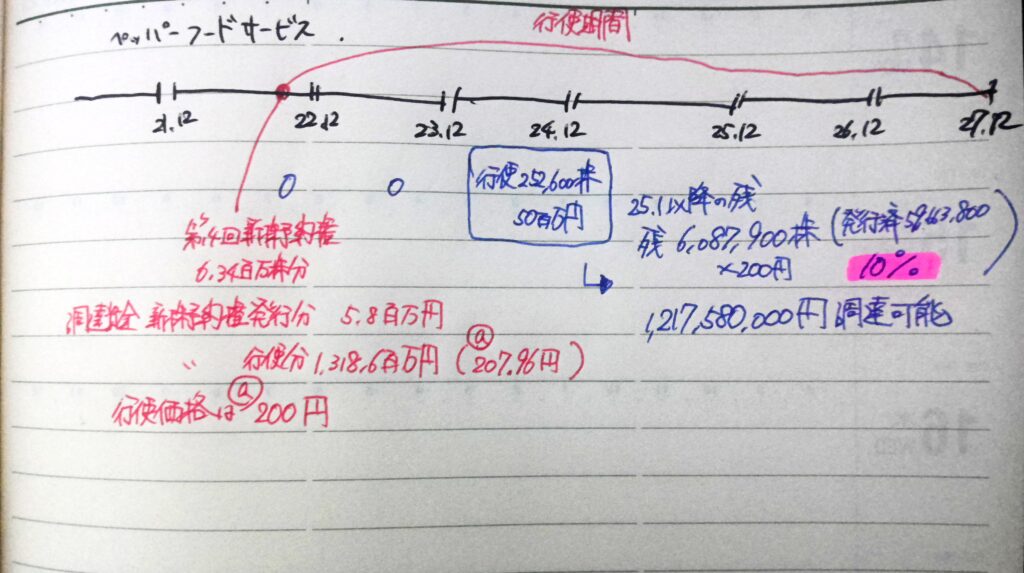 ペッパーフードサービス.
行使期間
21.12 22.12 23.12 24.12 25.12 26.12 27.12
0 0
行使252,600株
50百万円
25.1以降の残
残 6,087,900株
×200円
10%
1,217,580,000円 調達可能
第14回新株予約権
6.34百万株分
調達資金 新株予約権発行分 5.8百万円
〃 行使分 1,318.6百万円 (ⓐ207.96円)
行使価格は ⓐ200円